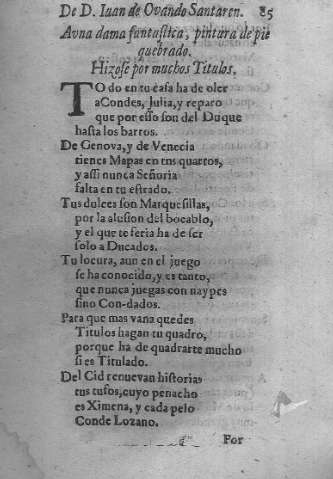 De D. Iuan de Ovando Santaren. 85
Avna dama fantastica, pintura de pie
quebrado.
Hizose por muchos Titulos.
TO do en tu casa ha de oler
aCondes, Julia, y reparo
que por esso son del Duque
hasta los barros.
De Genova, y de Venecia
tienes Mapas en tus quartos,
y assi nunca Señoria
falta en tu estrado.
Tus dulces son Marquesillas,
por la alusion del bocablo,
y el que te feria ha de ser
solo a Ducados.
Tu locura, aun en el juego
se ha conocido, y es tanto,
que nunca juegas con naypes
sino Con-dados.
Para que mas vana quedes
Titulos hagan tu quadro,
porque ha de quadrarte mucho
si es Titulado.
Del Cid renuevan historias
tus tufos, cuyo penacho
es Ximena, y cada pelo
Conde Lozano.
Por